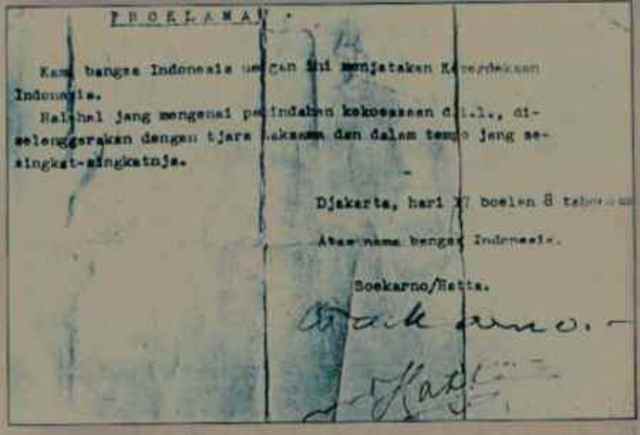 PROKLAMASI
Kami bangsa Indonesia dengan ini menjatakan Kemerdekaan
Indonesia.
Hal-hal jang mengenai pemindahan kekoeasaan d.l.l., di-
selenggarakan dengan tjara saksama dan dalam tempo jang se-
singkat-singkatnja.
Djakarta, hari 17 boelan 8 tahoen
Atas nama bangsa Indonesia.
Soekarno/Hatta.